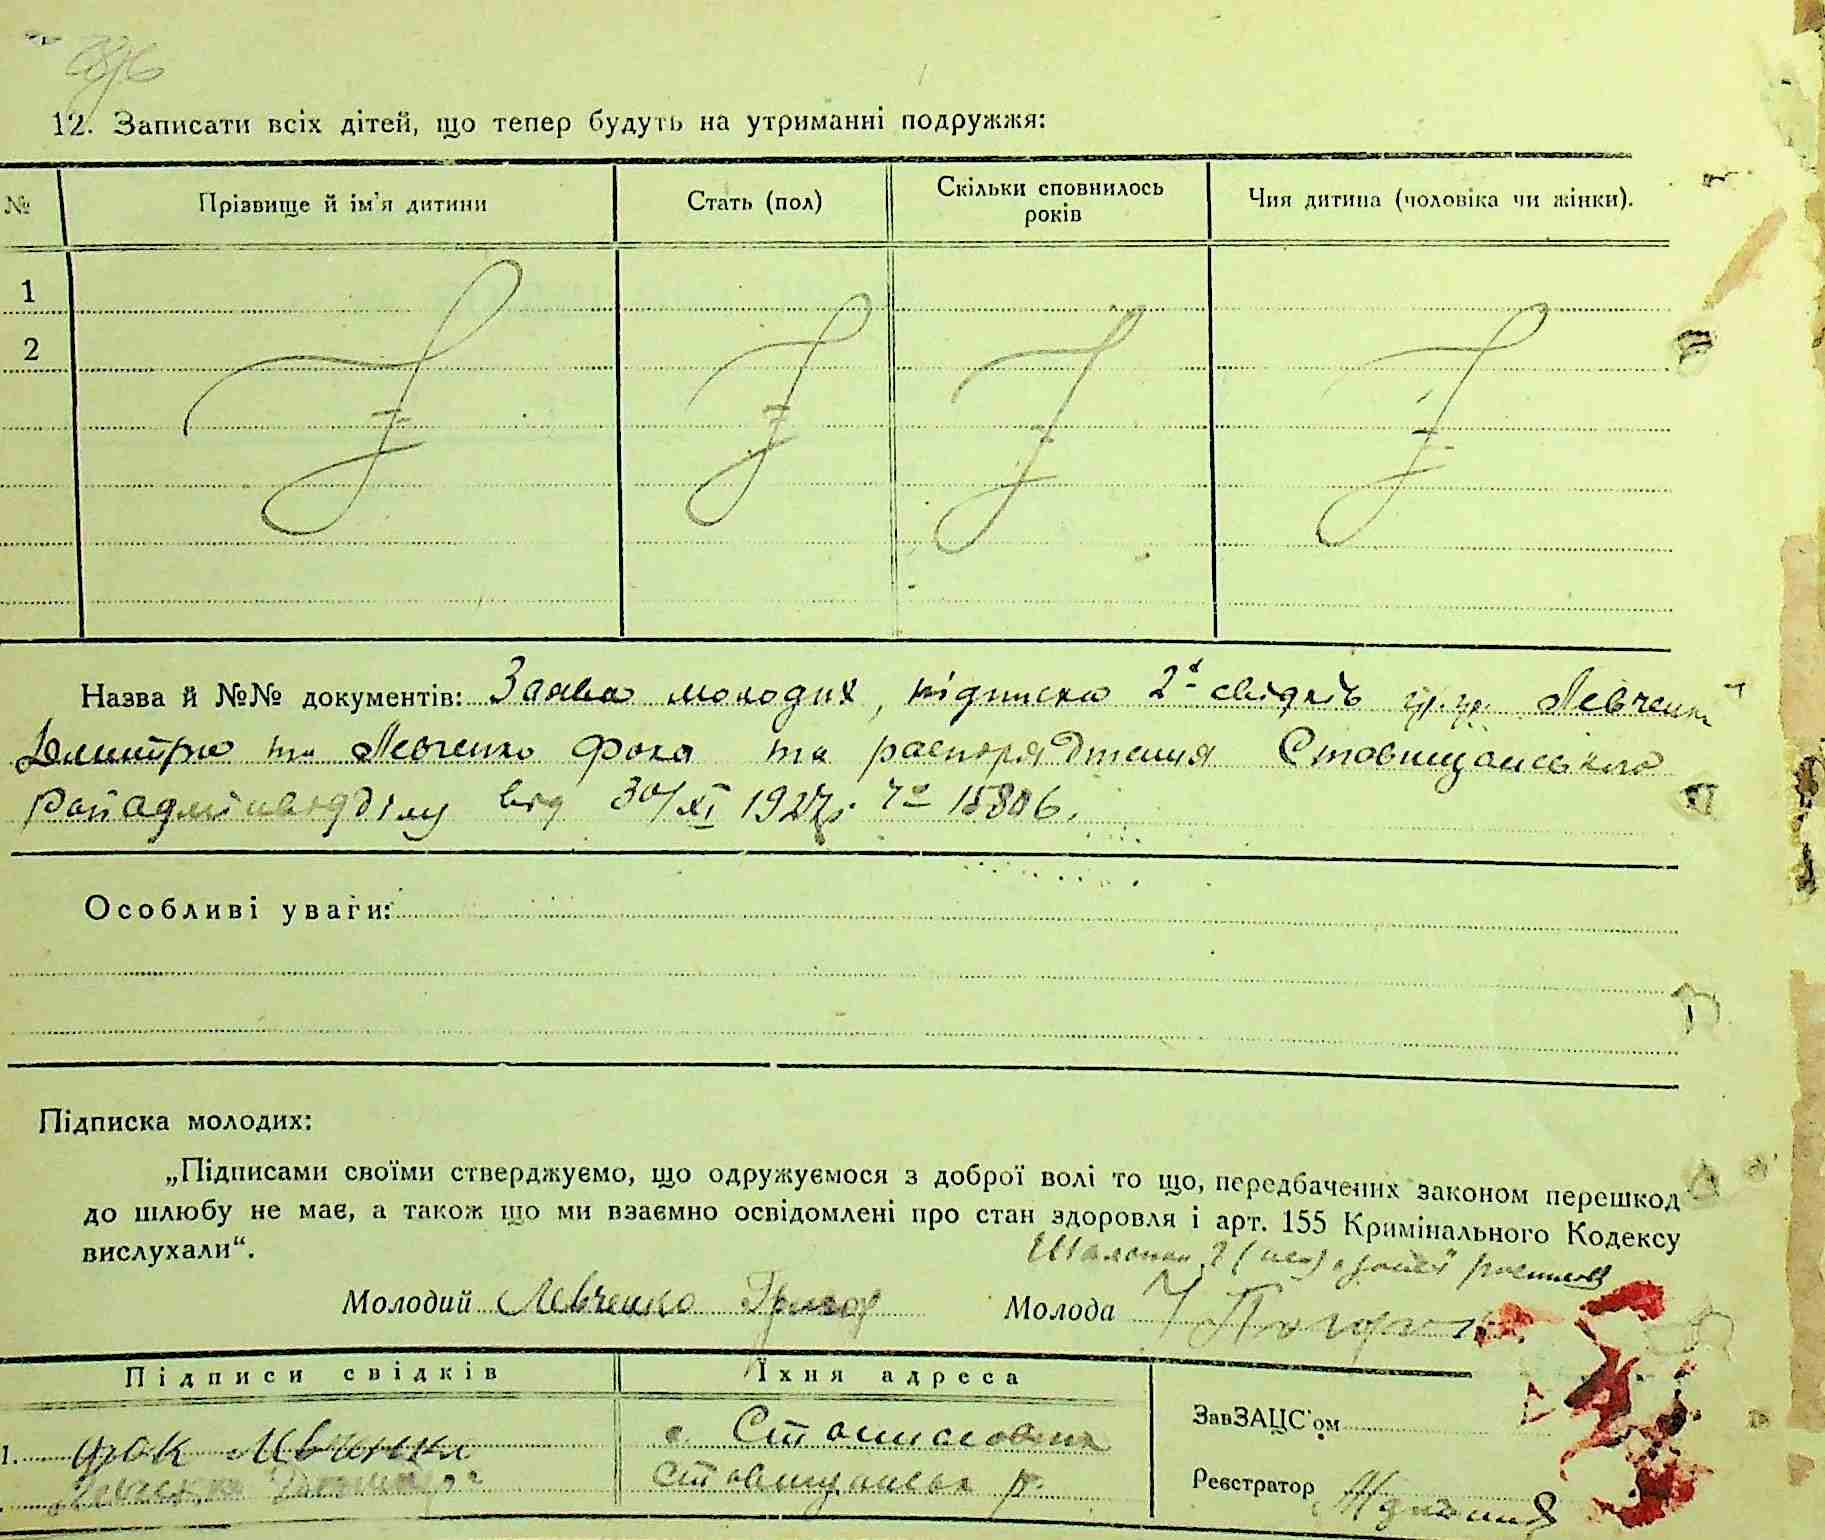 12. Записати всіх дітей, що тепер будуть на утриманні подружжя:
№ Прізвище й ім'я дитини Стать (пол) Скільки сповнилось років Чия дитина (чоловіка чи жінки).
1
2
Назва й №№ документів: Заява молодих, підписка 2х свідків гр.гр. Левченко
Дмитра та Левченко Фока та распорядження Ставищанського
Райадмінвідділу від 30/XI 1927р. № 15806.
Особливі уваги:
Підписка молодих:
„Підписами своїми стверджуємо, що одружуємося з доброї волі то що, передбачених законом перешкод
до шлюбу не має, а також що ми взаємно освідомлені про стан здоровля і арт. 155 Кримінального Кодексу
вислухали“.
Молодий Левченко Григор Молода
Підписи свідків Їхня адреса
ЗавЗАЦС'ом
1. Фок Левченко с.
Ставищанськ р.
Реєстратор